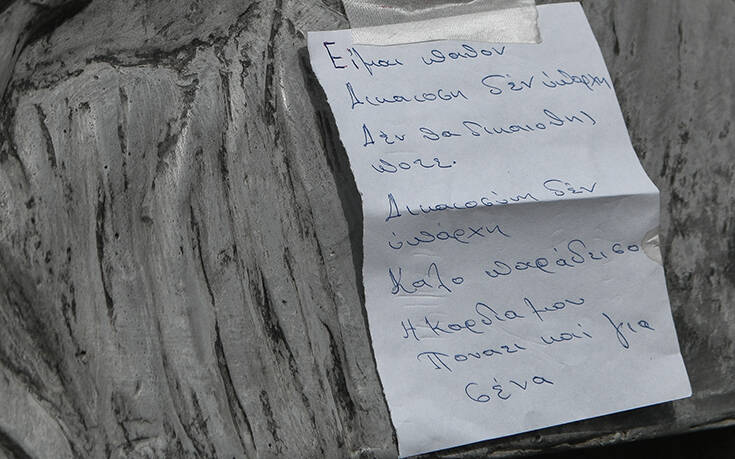 Είμαι παθον
Δικαιοση δέν ύπαρχη
Δέν θα δικαιοθης
ποτε.
Δικαιοσύνη δέν
ύπάρχη
Καλο παράδεισο
Η Καρδια μου
Ποναει καί για
σένα